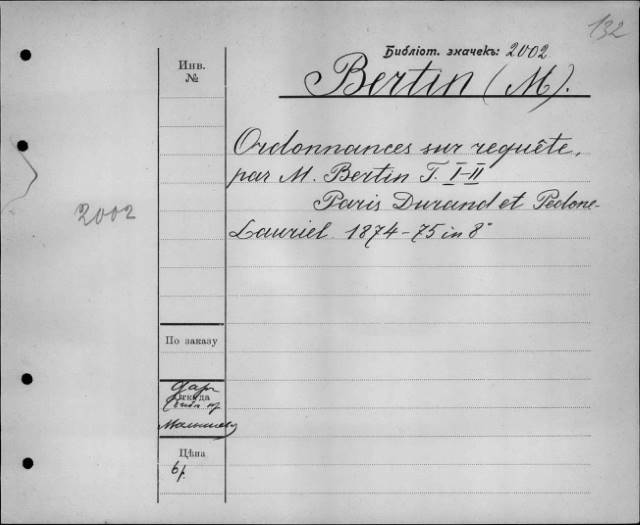 132
Библіот. значекъ: 2002
Инв.
№
Bertin (M).
Ordonnances sur requête,
par M. Bertin T. I-II
Paris Durand et Pedone-
Lauriel. 1874-75 in 8°
2002
По заказу
Даръ
Откуда
Цѣна
6 р.